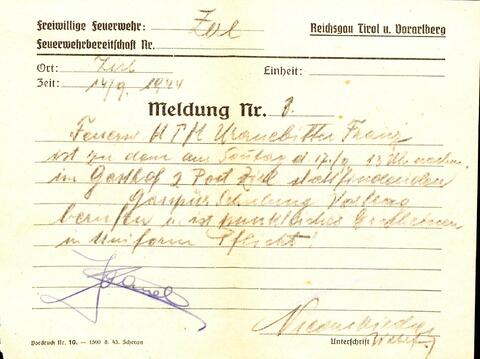 Freiwillige Feuerwehr: Zirl
Reichsgau Tirol u. Vorarlberg
Feuerwehrbereitschaft Nr.
Ort: Zirl
Einheit:
Zeit: 14/9. 1944
Meldung Nr. 8.
Feuerw. H T M Kranebitter Franz
ist zu dem am Sontag d 17./9. 13 Uhr nachm.
im Gasthof z Post Zirl stattfindenden
Schulung Vortrag
berufen u. ist pünktliches Erscheinen
in Uniform Pflicht!
Vordruck Nr. 10. — 1500 8. 43. Scherau
Unterschrift